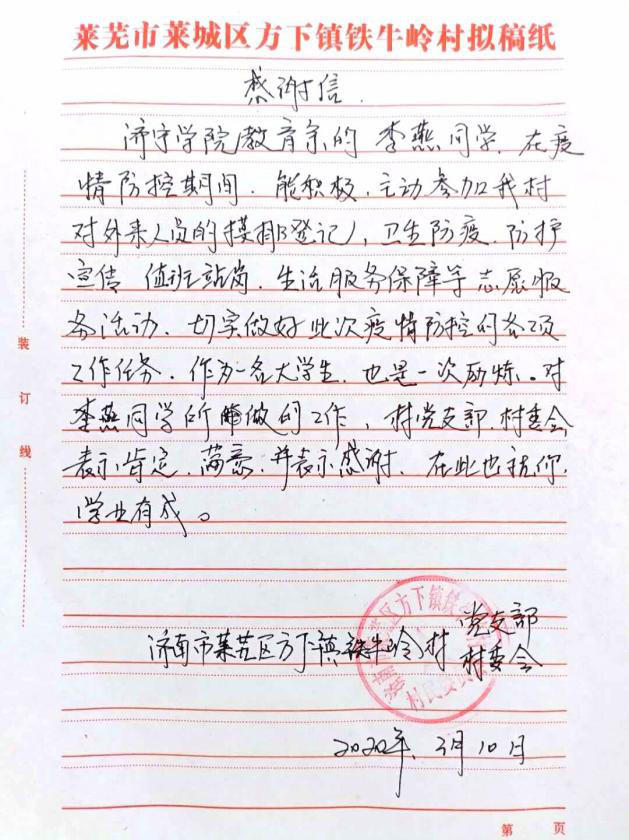 莱芜市莱城区方下镇铁牛岭村拟稿纸
感谢信.
济宁学院教育系的 李燕同学, 在疫
情防控期间, 能积极, 主动参加我村
对外来人员的摸排登记, 卫生防疫, 防护
宣传 值班站岗, 生活服务保障等志愿服
务活动, 切实做好此次疫情防控的各项
工作任务, 作为一名大学生, 也是一次历炼。对
李燕同学所做的工作, 村党支部, 村委会
表示肯定, 满意, 并表示感谢, 在此也祝你,
学业有成。
装
订
线
党支部
济南市莱芜区方下镇铁牛岭村
村委会
2020年, 2月10日
第 页